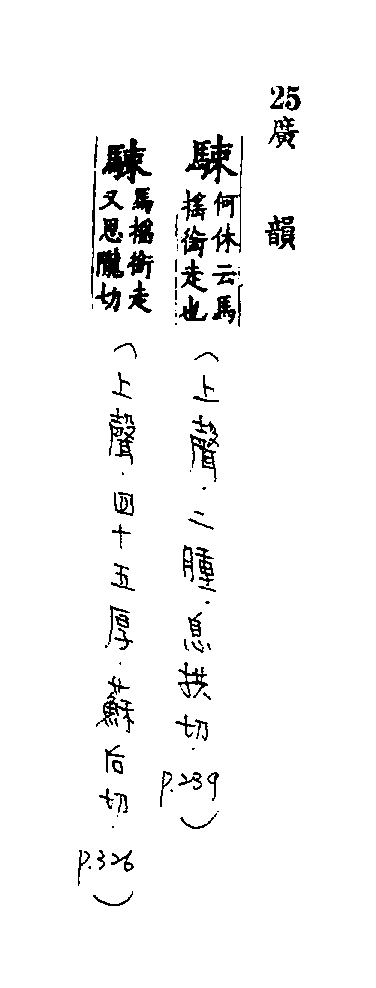 25 廣韻
駷 何休云馬搖銜走也 (上聲.二腫.息拱切.p.239)
駷 馬搖銜走又思隴切 (上聲.四十五厚.蘇后切.p.326)